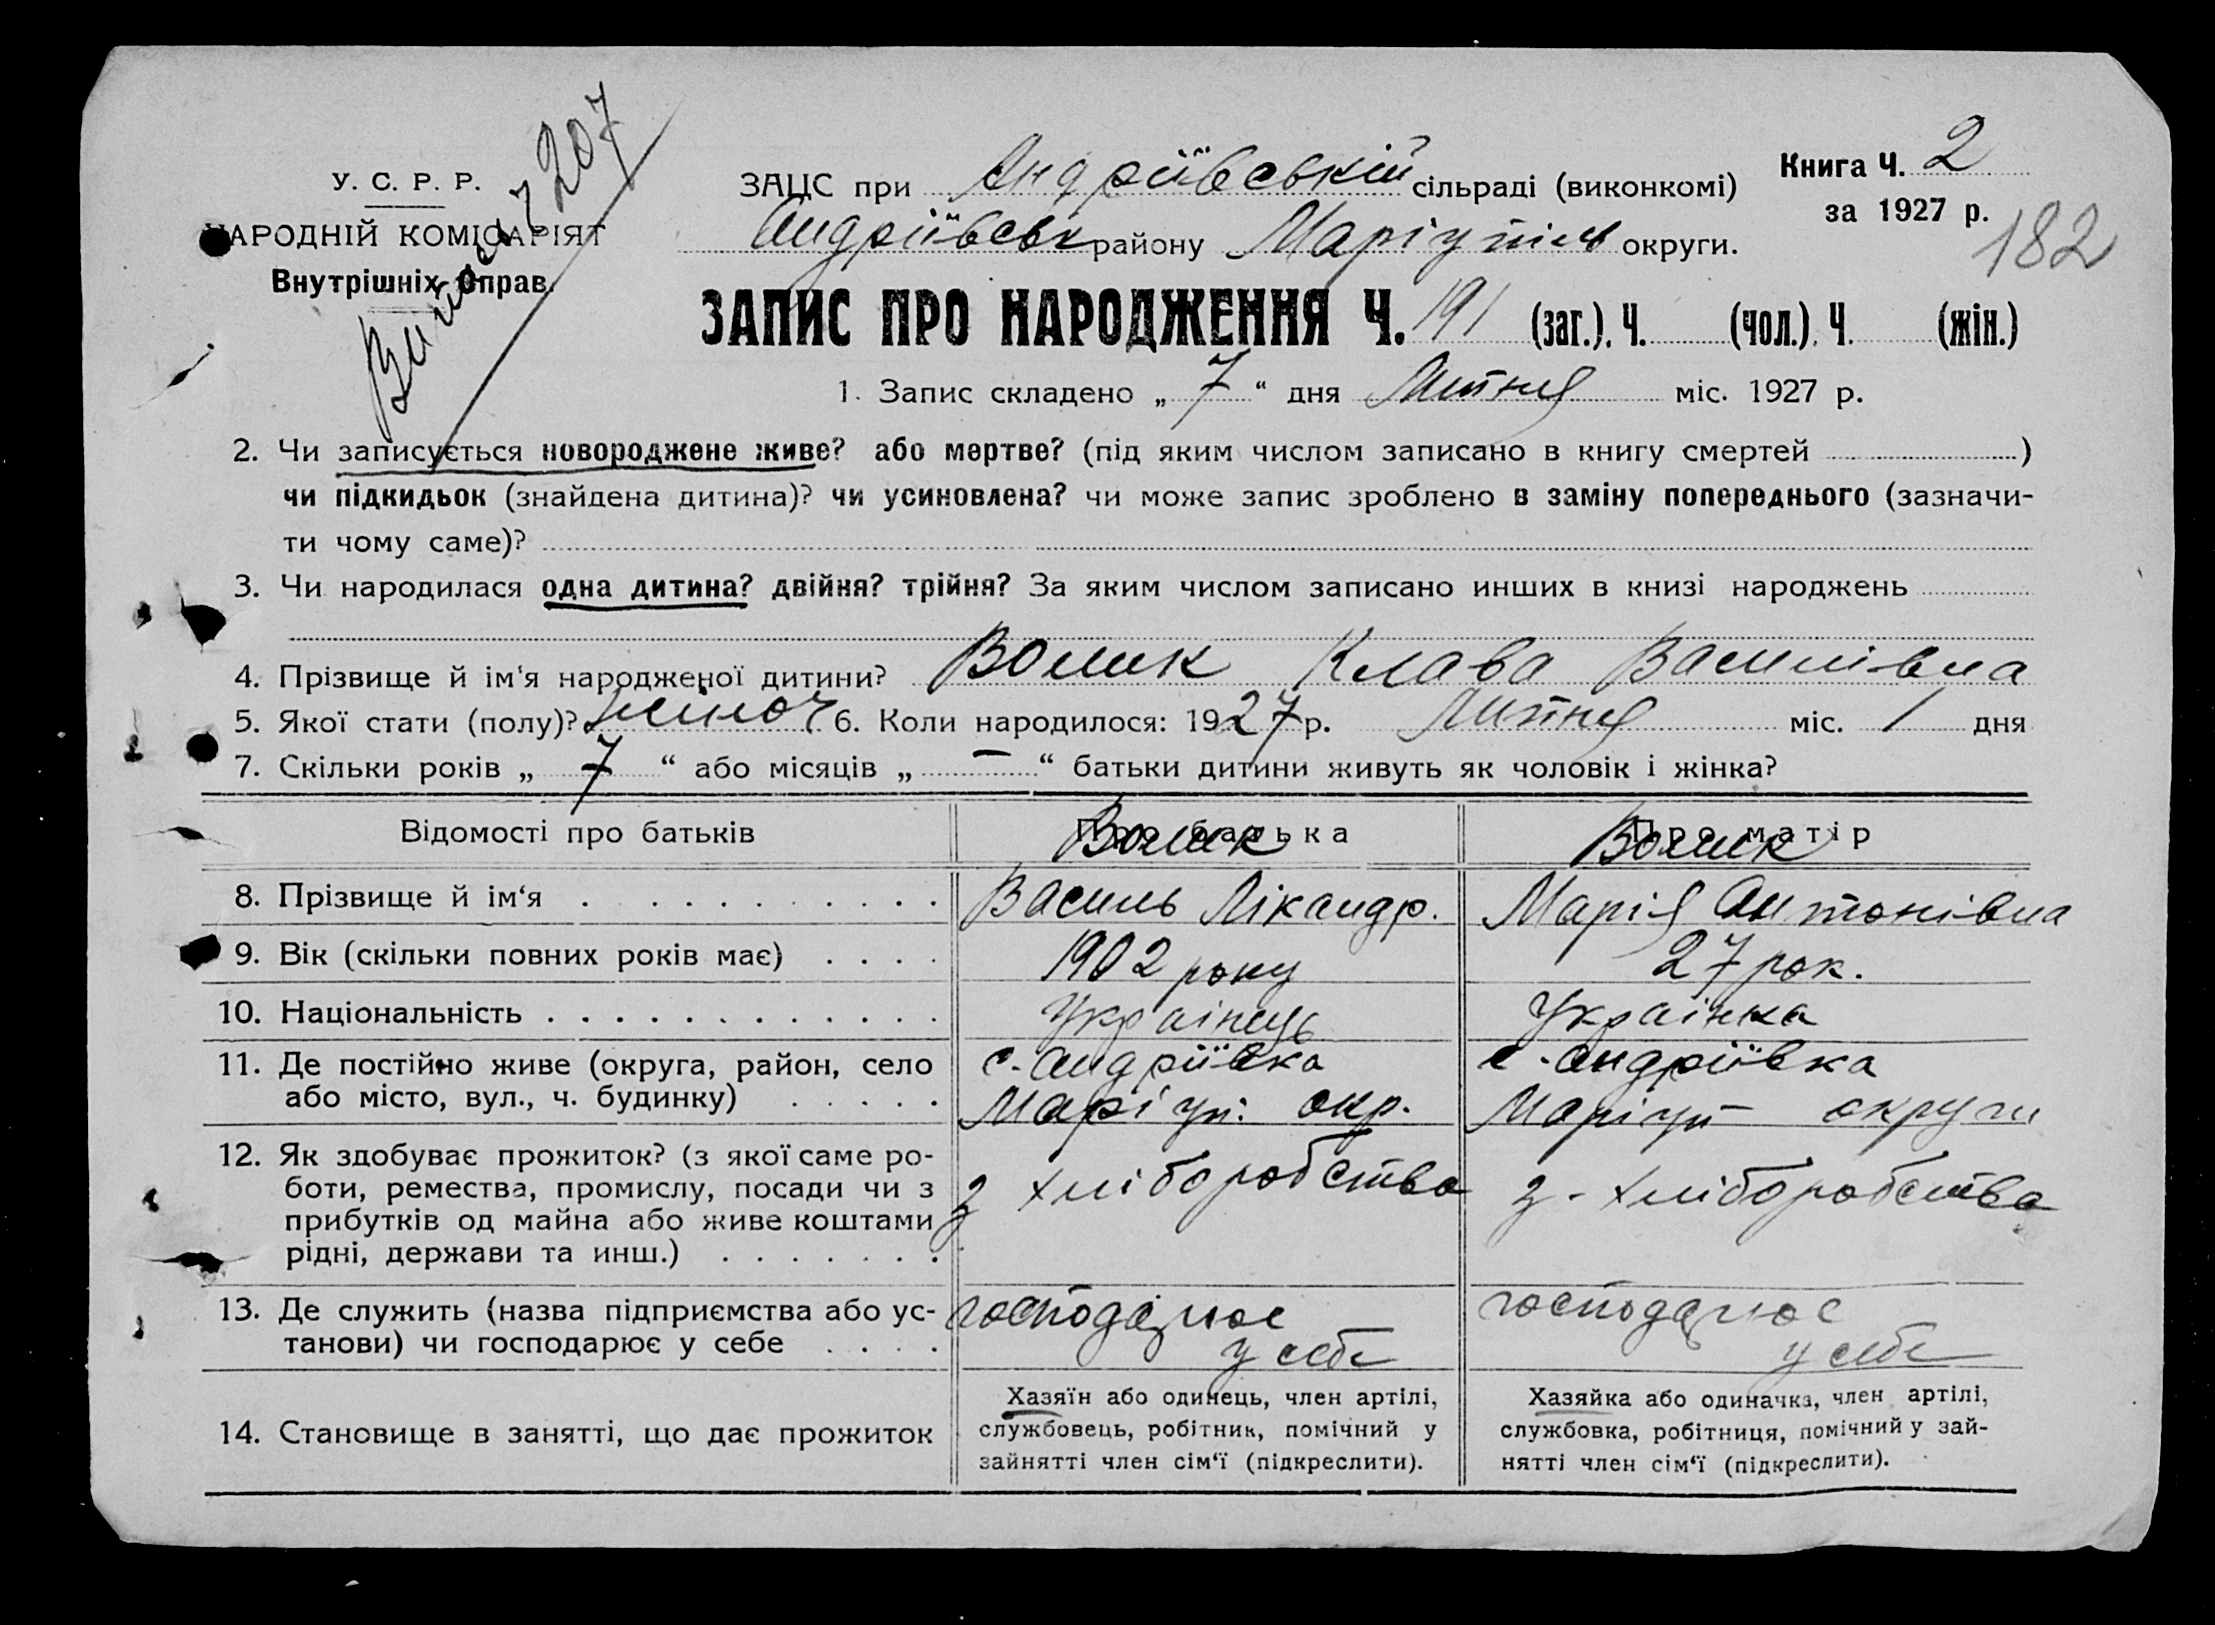 Витяг Ч 207
У. С. Р. Р.
НАРОДНІЙ КОМІСАРІЯТ
Внутрішніх Справ.
ЗАЦС при Андріївській сільраді (виконкомі)
Андріївськ району Маріупіль округи.
Книга Ч. 2
за 1927 р.
182
ЗАПИС ПРО НАРОДЖЕННЯ Ч. 191 (заг.). Ч. (чол.). Ч. (жін.)
1. Запис складено „ 7 “ дня Липня міс. 1927 р.
2. Чи записується новороджене живе? або мертве? (під яким числом записано в книгу смертей )
чи підкидьок (знайдена дитина)? чи усиновлена? чи може запис зроблено в заміну попереднього (зазначи-
ти чому саме)?
3. Чи народилася одна дитина? двійня? трійня? За яким числом записано инших в книзі народжень
4. Прізвище й ім‘я народженої дитини? Волик Клава Василівна
5. Якої стати (полу)? жіноч 6. Коли народилося: 1927 р. Липня міс. 1 дня
7. Скільки років „ 7 “ або місяців „ — “ батьки дитини живуть як чоловік і жінка?
Відомості про батьків Про батька Про матір
Волик Волик
8. Прізвище й ім‘я Василь Лікандр. Марія Антонівна
9. Вік (скільки повних років має) 1902 року 27 рок.
10. Національність Украінець Украінка
11. Де постійно живе (округа, район, село с. Андріївка с. Андріївка
або місто, вул., ч. будинку) Маріуп. окр. Маріуп округи
12. Як здобуває прожиток? (з якої саме ро-
боти, ремества, промислу, посади чи з з хліборобства з - хліборобства
прибутків од майна або живе коштами
рідні, держави та инш.)
13. Де служить (назва підприємства або ус- господарює господарює
танови) чи господарює у себе у себе у себе
Хазяїн або одинець, член артілі, Хазяйка або одиначка, член артілі,
14. Становище в занятті, що дає прожиток службовець, робітник, помічний у службовка, робітниця, помічний у зай-
зайнятті член сім‘ї (підкреслити). нятті член сім‘ї (підкреслити).